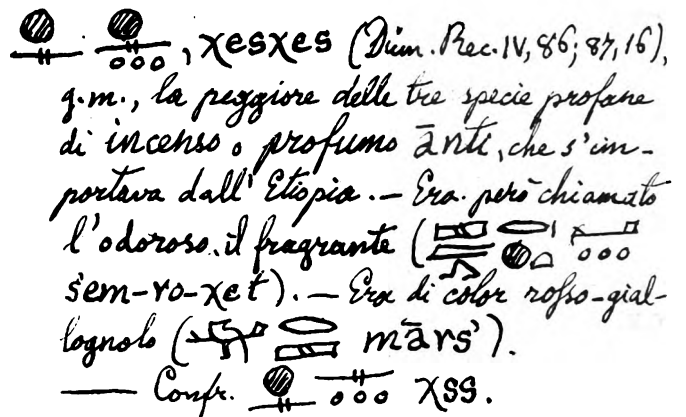 𓐍𓊃𓐍𓊃𓏥, χesχes (Düm. Rec. IV, 86; 87, 16),
g.m., la peggiore delle tre specie profane
di incenso o profumo ānti, che s'im-
portava dall'Etiopia. — Era però chiamato
l'odoroso, il fragrante (
sem-ro-χet). — Era di color rosso-gial-
lognolo ( mārs').
— Confr. 𓐍𓊃𓊃𓏥 χss.